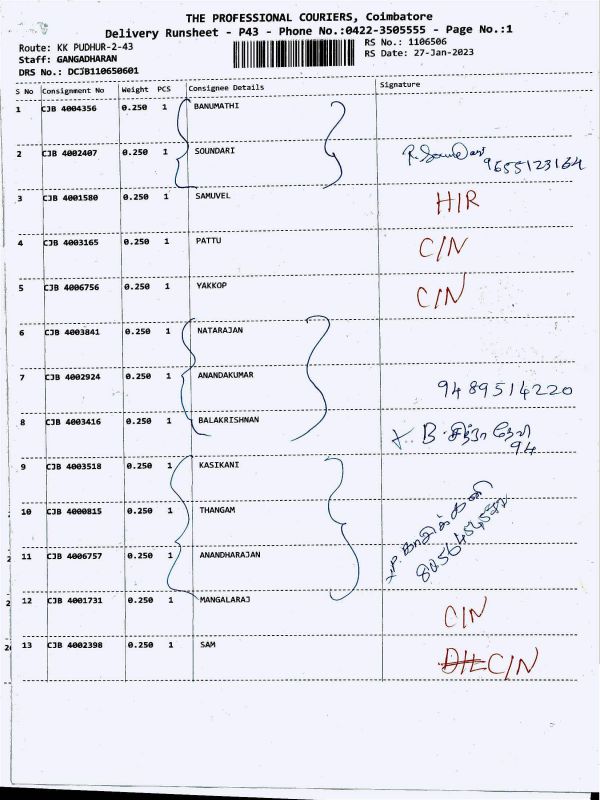 THE PROFESSIONAL COURIERS, Coimbatore
Delivery Runsheet - P43 - Phone No.:0422-3505555 - Page No.:1
Route: KK PUDHUR-2-43
RS No.: 1106506
Staff: GANGADHARAN
RS Date: 27-Jan-2023
DRS No.: DCJB110650601
S No Consignment No Weight PCS Consignee Details Signature
1 CJB 4004356 0.250 1 BANUMATHI
2 CJB 4002407 0.250 1 SOUNDARI 9655123164
3 CJB 4001580 0.250 1 SAMUVEL H/R
4 CJB 4003165 0.250 1 PATTU C/N
5 CJB 4006756 0.250 1 YAKKOP C/N
6 CJB 4003841 0.250 1 NATARAJAN
7 CJB 4002924 0.250 1 ANANDAKUMAR 9489514220
8 CJB 4003416 0.250 1 BALAKRISHNAN B. சித்ரா தேவி
94
9 CJB 4003518 0.250 1 KASIKANI
10 CJB 4000815 0.250 1 THANGAM
11 CJB 4006757 0.250 1 ANANDHARAJAN
12 CJB 4001731 0.250 1 MANGALARAJ C/N
13 CJB 4002398 0.250 1 SAM C/N